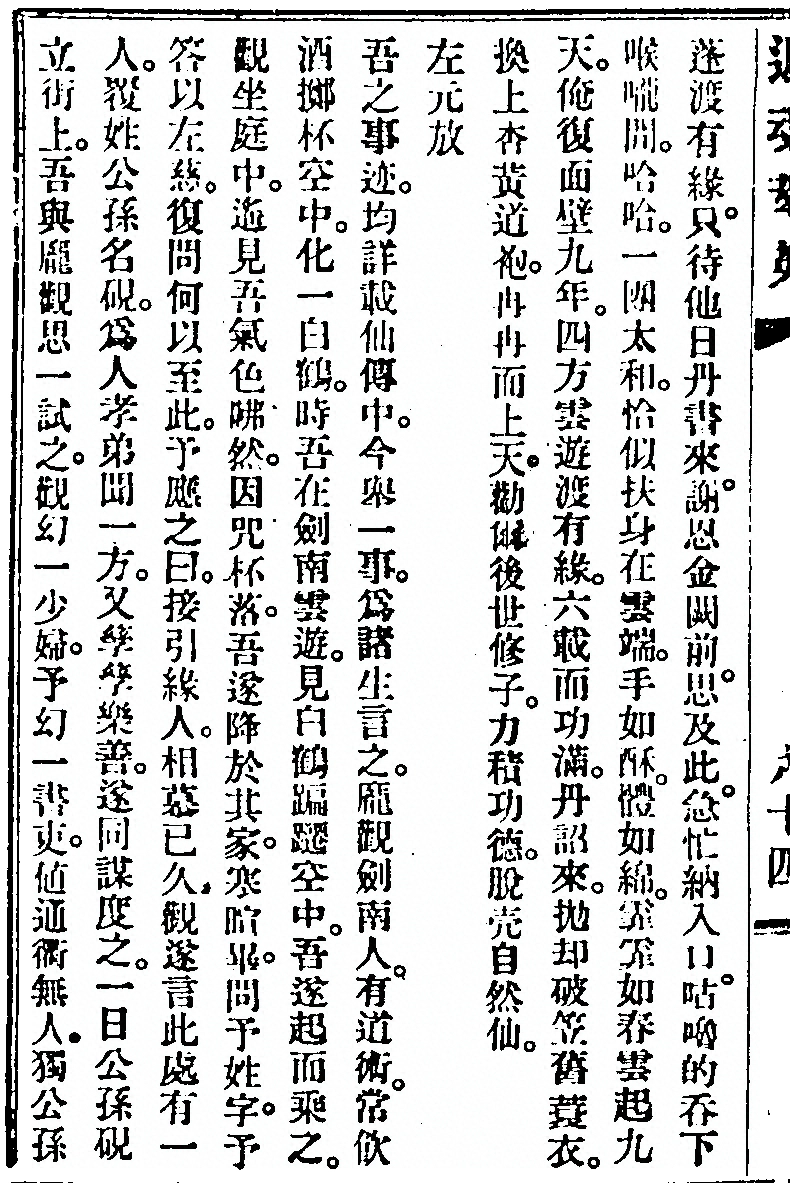 蓬渡有緣。只待他日丹書來。謝恩金闕前。思及此。急忙納入口。咕嘟的吞下
喉嚨間。哈哈。一團太和。恰似扶身在雲端。手如酥。體如綿。靄靄如春雲起九
天。俺復面壁九年。四方雲遊渡有緣。六載而功滿。丹詔來。拋却破笠舊蓑衣。
換上杏黃道袍。冉冉而上天。勸爾後世修子。力積功德。脫壳自然仙。
左元放
吾之事迹。均詳載仙傳中。今舉一事。爲諸生言之。龐觀劍南人。有道術。常飲
酒擲杯空中。化一白鶴。時吾在劍南雲遊。見白鶴蹁躚空中。吾遂起而乘之。
觀坐庭中。遙見吾氣色咈然。因咒杯落。吾遂降於其家。寒暄畢。問予姓字。予
答以左慈。復問何以至此。予應之曰。接引緣人。相慕已久。觀遂言此處有一
人。覆姓公孫名硯。爲人孝弟聞一方。又孳孳樂善。遂同謀度之。一日公孫硯
立街上。吾與龐觀思一試之。觀幻一少婦。予幻一書吏。値通衢無人。獨公孫
十四